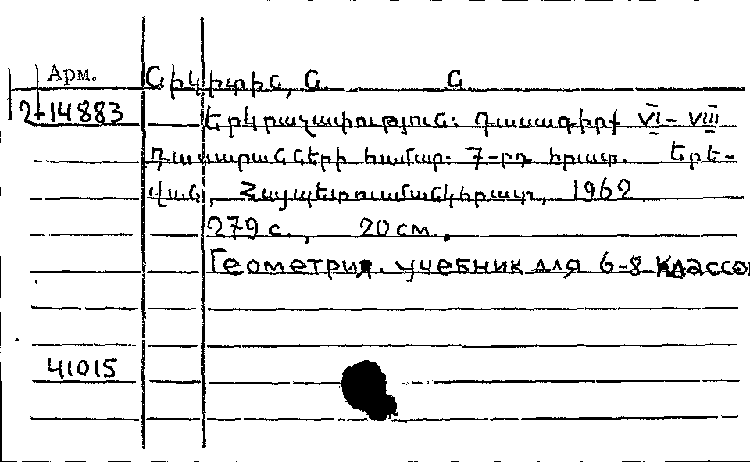 Арм. Նիկիտին, Ն. Ն.
2-14883
Երկրաչափություն: Դասագիրք VI-VIII
դասարանների համար: 7-րդ հրատ. Երե-
վան, Հայպետուսմանկհրատ, 1962
279 с., 20 см.,
Геометрия. учебник для 6-8 классов
41015